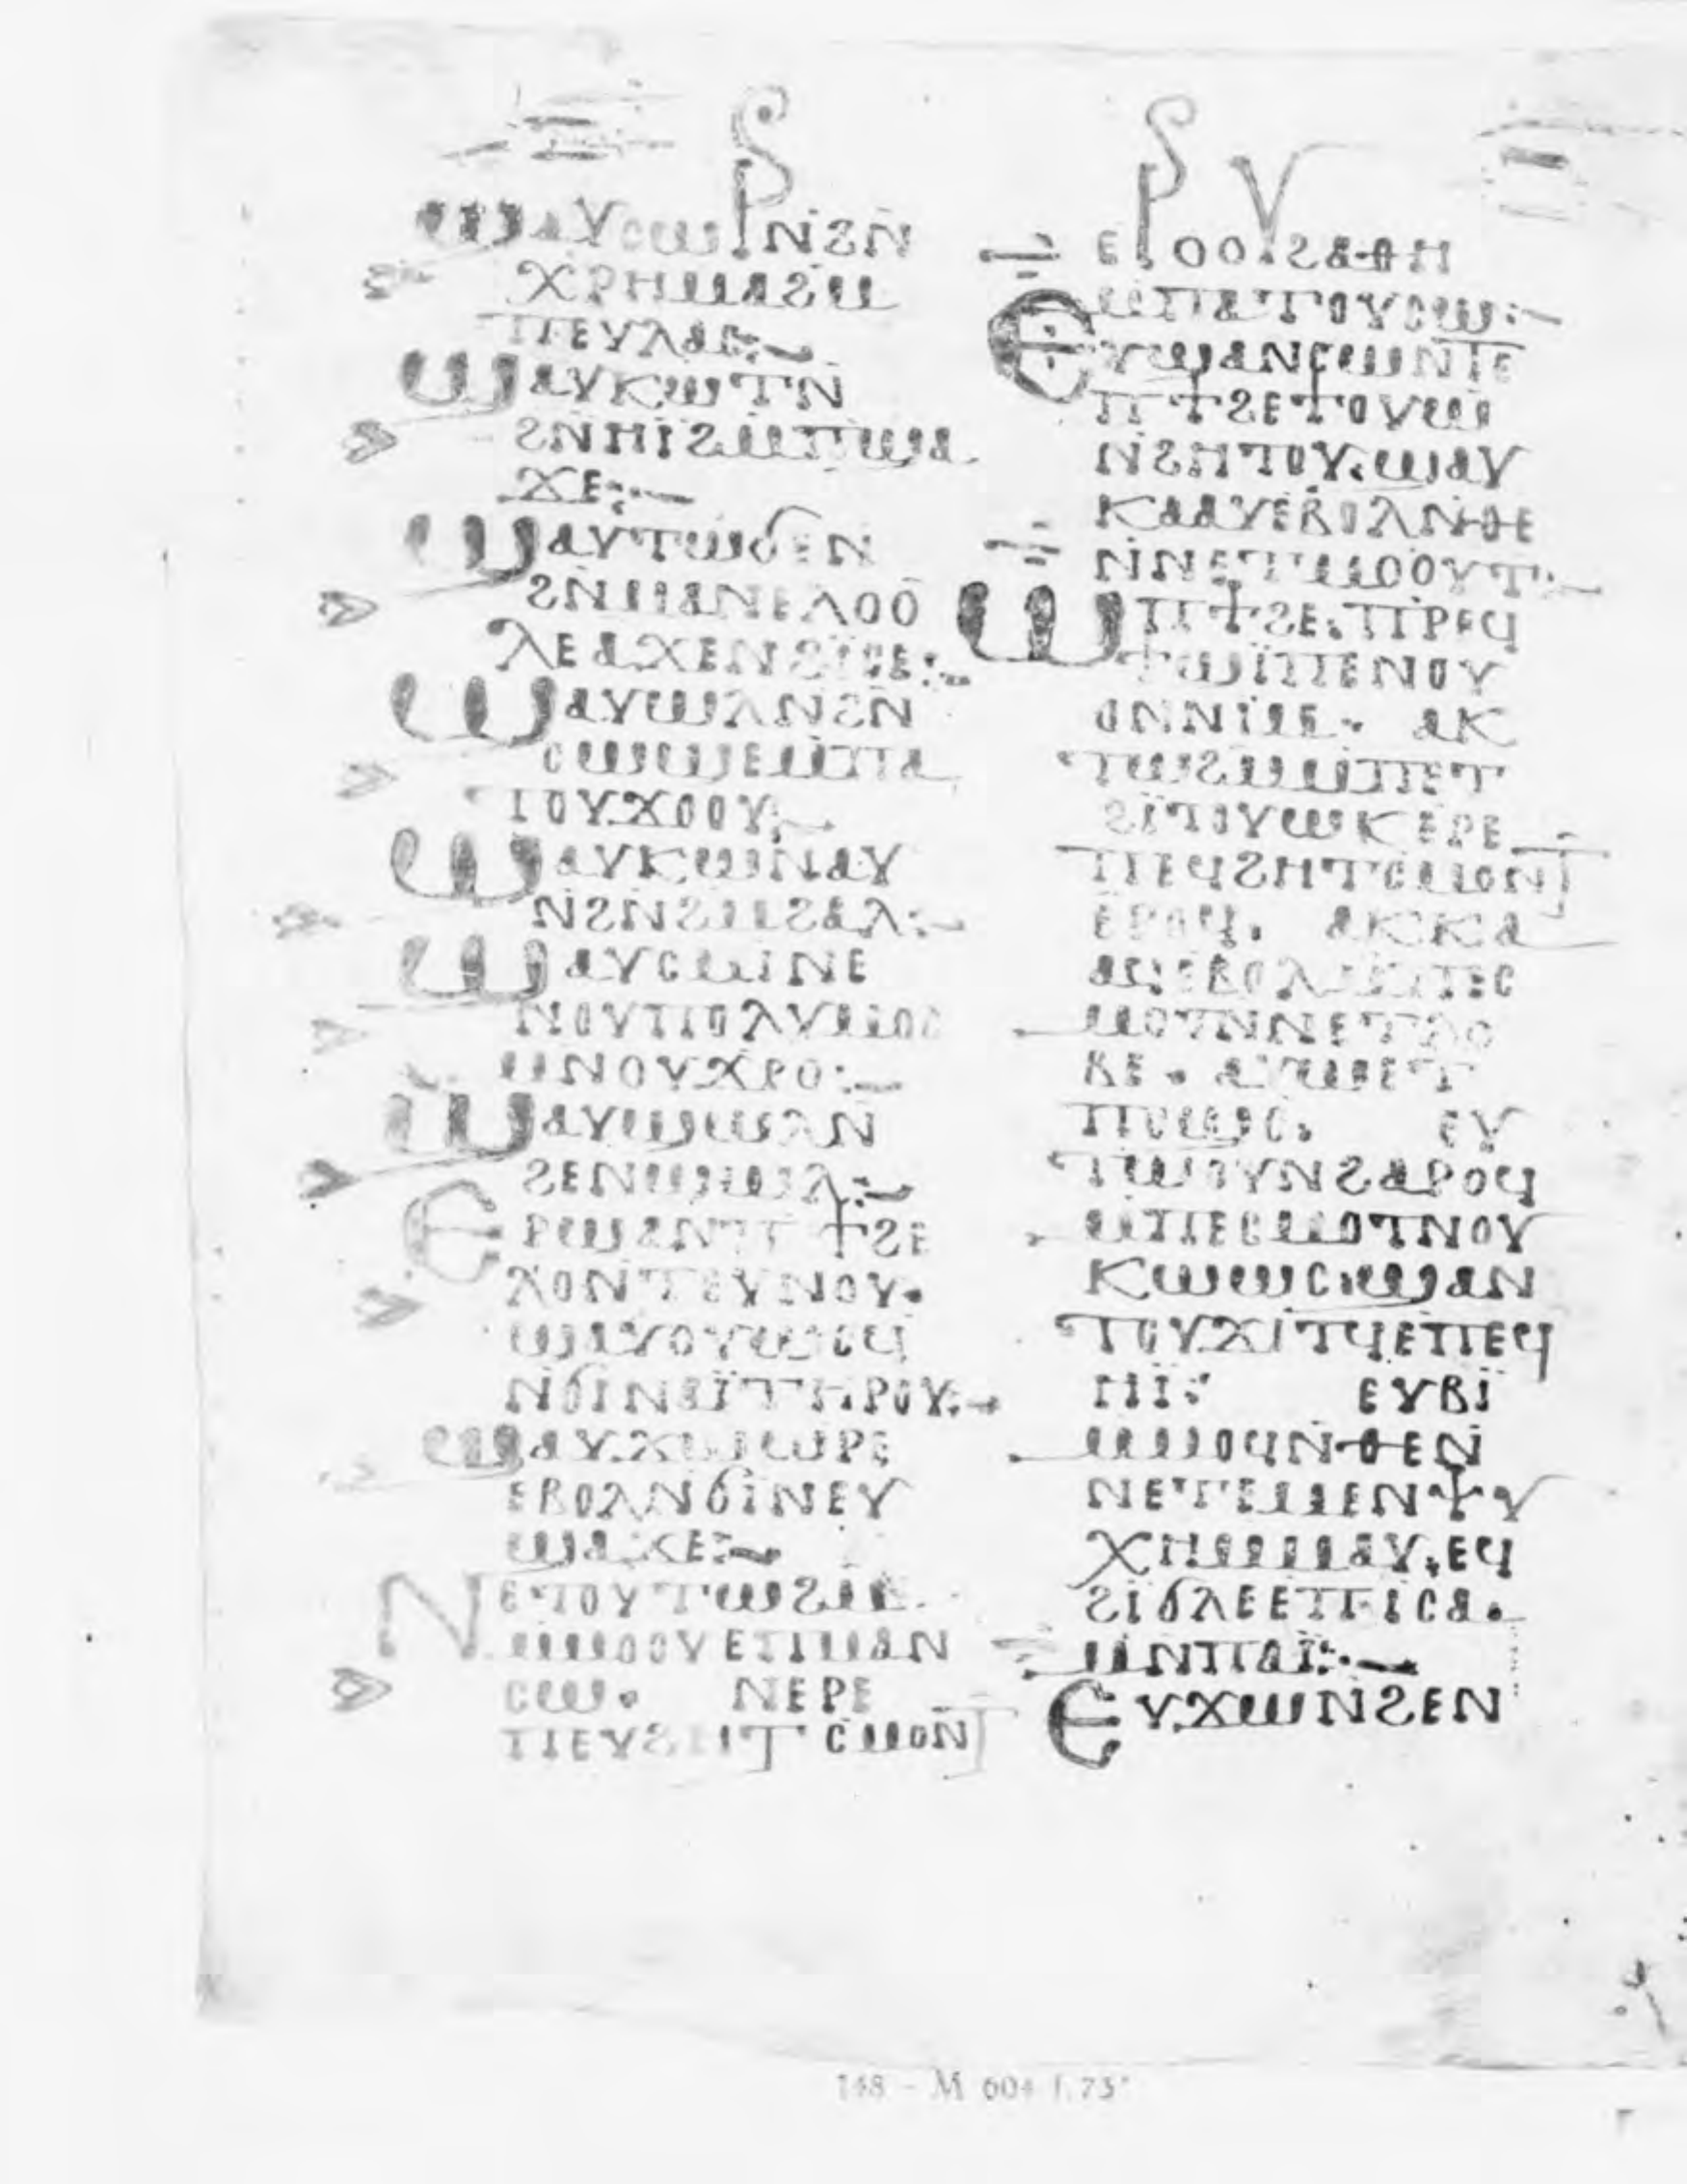 ϣⲁⲩⲥⲱⲣⲛ̄ϩⲛ̄
ⲭⲣⲏⲙⲁϩⲙ̄
ⲡⲉⲩⲗⲁⲥ:—
ϣⲁⲩⲕⲱⲧⲛ̄
ϩⲛ̄ⲏⲓ̈ϩⲙ̄ⲡϣⲁ
ϫⲉ:—
ϣⲁⲩⲧⲱϭⲉⲛ
ϩⲛ̄ⲙⲁⲛⲉⲗⲟⲟ
ⲗⲉⲁϫⲉⲛϩⲓⲥⲉ:—
ϣⲁⲩⲱⲗⲛ̄ϩⲛ̄
ⲥⲱϣⲉⲙ̄ⲡⲁ
ⲧⲟⲩϫⲟⲟⲩ:—
ϣⲁⲩⲕⲱⲛ̄ⲁⲩ
ⲛ̄ϩⲛ̄ϩⲙ̄ϩⲁⲗ:—
ϣⲁⲩⲥⲙⲓⲛⲉ
ⲛⲟⲩⲡⲟⲗⲩⲙⲟⲥ
ⲙⲛⲟⲩϫⲣⲟ:—
ϣⲁⲩϣⲱⲗⲛ̄
ϩⲉⲛϣⲱⲗ:—
ⲉⲣϣⲁⲛⲡ ϯϩⲉ
ⲗⲟⲛⲧⲉⲩⲛⲟⲩ.
ϣⲁⲩⲟⲩⲱⲥϥ
ⲛ̄ϭⲓⲛⲁⲓ̈ⲧⲏⲣⲟⲩ:—
ϣⲁⲩϫⲱⲱⲣⲉ
ⲉⲃⲟⲗⲛ̄ϭⲓⲛⲉⲩ
ϣⲁϫⲉ:—
ⲛⲉⲧⲟⲩⲧⲱϩⲙ̄
ⲙ̄ⲙⲟⲟⲩⲉⲡⲙⲁⲛ
ⲥⲱ. ⲛⲉⲣⲉ
ⲡⲉⲩϩⲏⲧ ⲥⲙⲟⲛⲧ
ⲉⲣⲟⲟⲩϩⲁⲑⲏ
ⲙ̄ⲡⲁⲧⲟⲩⲥⲱ:—
ⲉⲩϣⲁⲛⲥⲱⲛⲧⲉ
ⲡ ϯϩⲉϯⲟⲩⲱ
ⲛ̄ϩⲏⲧⲟⲩ.ϣⲁⲩ
ⲕⲁⲁⲩⲉⲃⲟⲗⲛ̄ⲑⲉ
ⲛ̄ⲛⲉⲧⲙⲟⲟⲩⲧ:—
ⲱⲡ ϯϩⲉ.ⲡⲣⲉϥ
ϯⲱⲡⲉⲛⲟⲩ
ⲟⲛⲛⲓⲙ. ⲁⲕ
ⲧⲱϩⲙ̄ⲙ̄ⲡⲉⲧ
ϩⲓⲧⲟⲩⲱⲕⲉⲣⲉ
ⲡⲉϥϩⲏⲧⲥⲙⲟⲛⲧ
ⲉⲣⲟϥ. ⲁⲕⲕⲁ
ⲁϥⲉⲃⲟⲗⲙ̄ⲡⲉⲥ
ⲙⲟⲧⲛ̄ⲛⲉⲧⲗⲟ
ⲃⲉ. ⲁⲩⲱⲉⲧ
ⲡⲟϣⲥ. ⲉⲩ
ⲧⲱⲟⲩⲛϩⲁⲣⲟϥ
ⲙ̄ⲡⲉⲥⲙⲟⲧⲛⲟⲩ
ⲕⲱⲱⲥ.ϣⲁⲛ
ⲧⲟⲩϫⲓⲧϥⲉⲡⲉϥ
ⲏⲓ̈: ⲉⲩϥⲓ
ⲙ̄ⲙⲟϥⲛ̄ⲑⲉⲛ̄
ⲛⲉⲧⲉⲙⲉⲛⲯⲩ
ⲭⲏⲙ̄ⲙⲁⲩ.ⲉϥ
ϩⲓϭⲗⲉⲉⲡⲉⲓⲥⲁ.
ⲙⲛ̄ⲡⲁⲓ̈:—
ⲉⲩϫⲱⲛ̄ϩⲉⲛ
148 - M 604 f. 73ᵛ